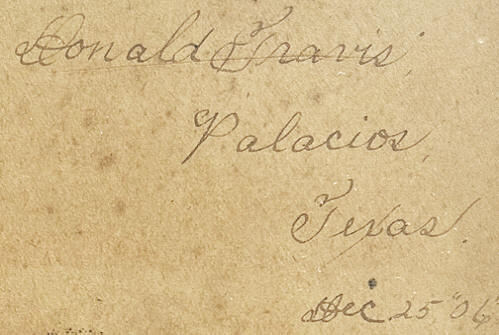 Donald Travis,
Palacios,
Texas.
Dec 25 "06"